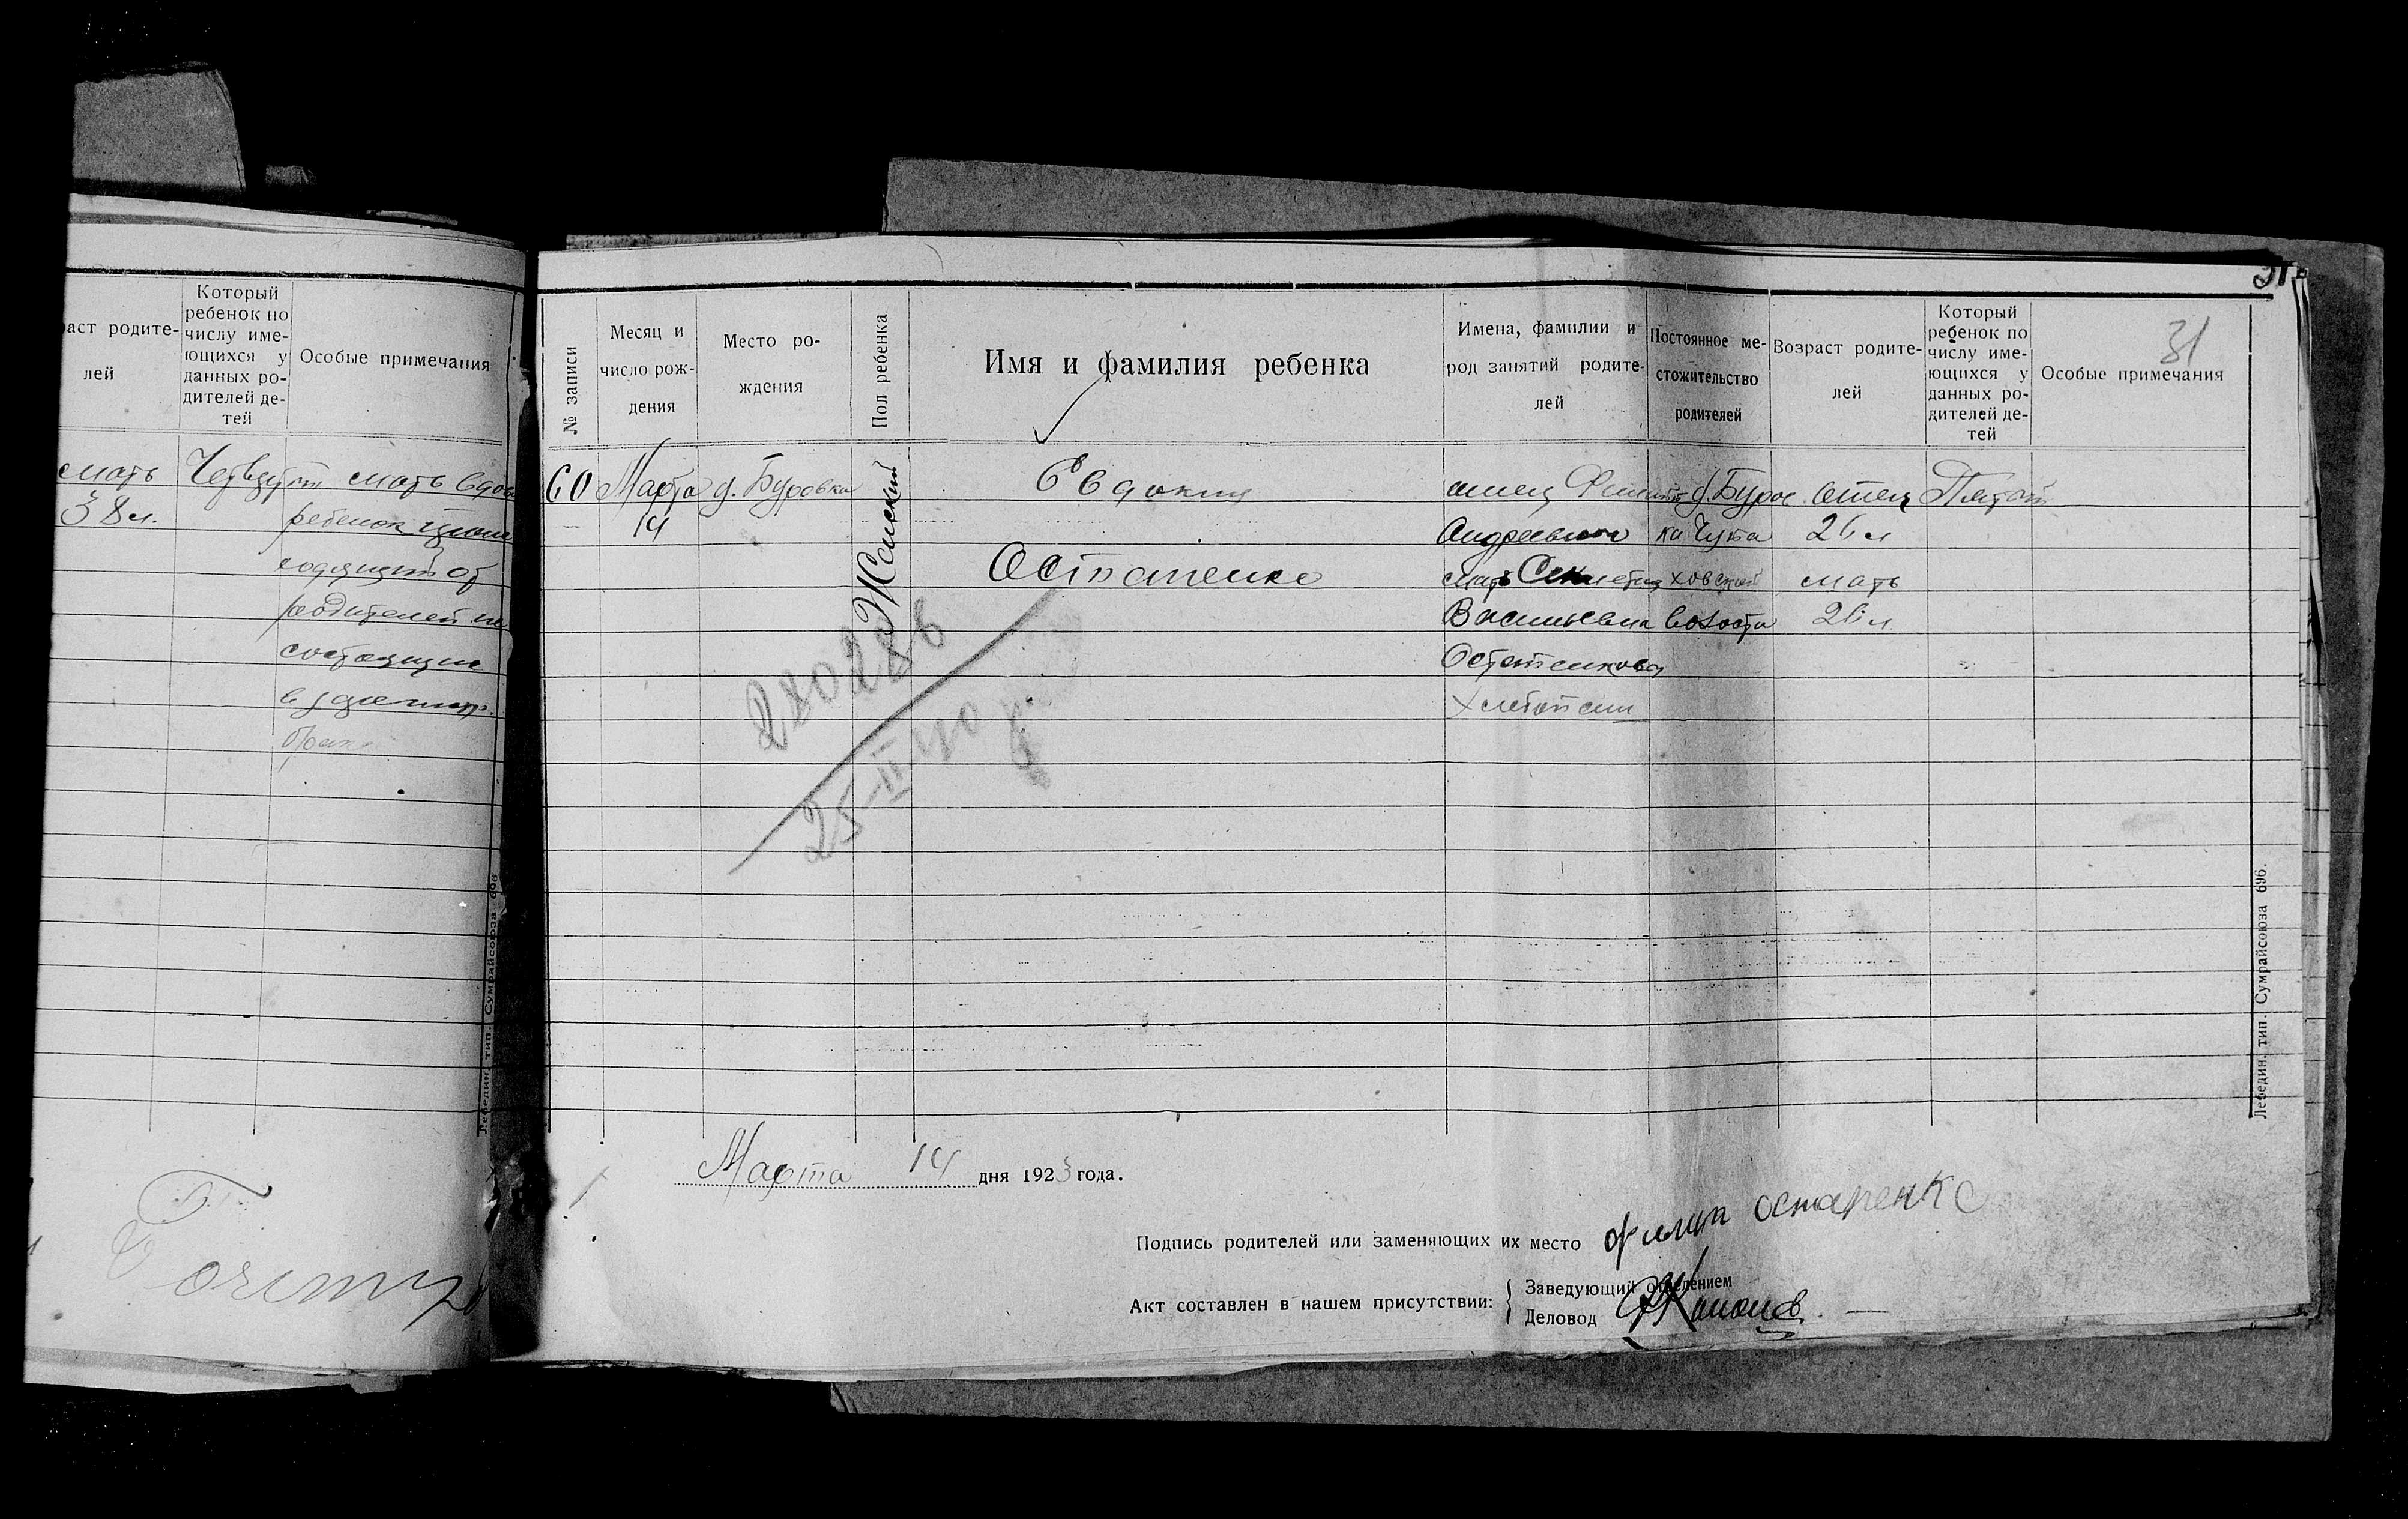 раст родите-
лей
Который
ребенок по
числу име-
ющихся у
данных ро-
дителей де-
тей
Особые примечания
мать
38 л.
мать вдова
ребенок
родителей не
состоящие
Лебедин. тип. Сумрайсоюза 696
31
№ записи
Месяц и
число рож-
дения
Место ро-
ждения
Пол ребенка
Имя и фамилия ребенка
Имена, фамилии и
род занятий родите-
лей
Постоянное ме-
стожительство
родителей
Возраст родите-
лей
Который
ребенок по
числу име-
ющихся у
данных ро-
дителей де-
тей
Особые примечания
31
60
Марта
14
д. Буровка
Женский
Евдокия
Остапенко
отец Филипп
Андреевич
мать
Васильевна
Остапенкова
д. Буров
ка Чупа
ховской
волости
отец
26 л
мать
26 л.
Пятый
280286
25 II 40 г
Лебедин. тип. Сумрайсоюза 696.
Марта 14 дня 1923 года.
Подпись родителей или заменяющих их место Филип Остапенко
Акт составлен в нашем присутствии:
Заведующий отделением
Деловод